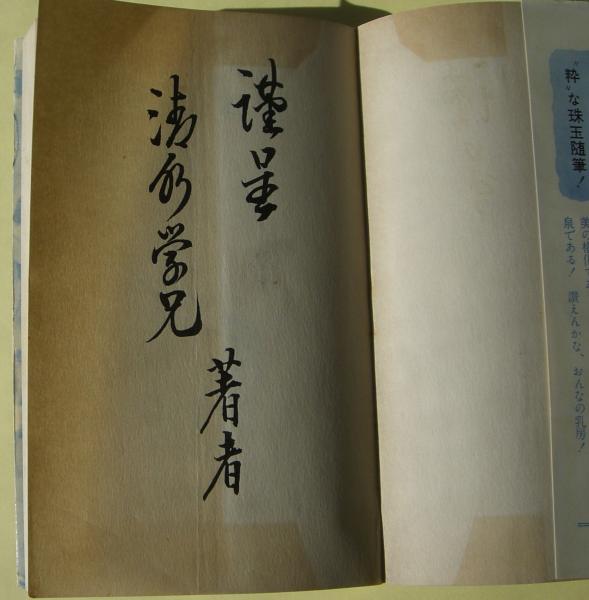 "粋"な珠玉随筆!
美の
泉である! 讃えんかな、おんなの乳房!
謹呈
清水学兄
著者